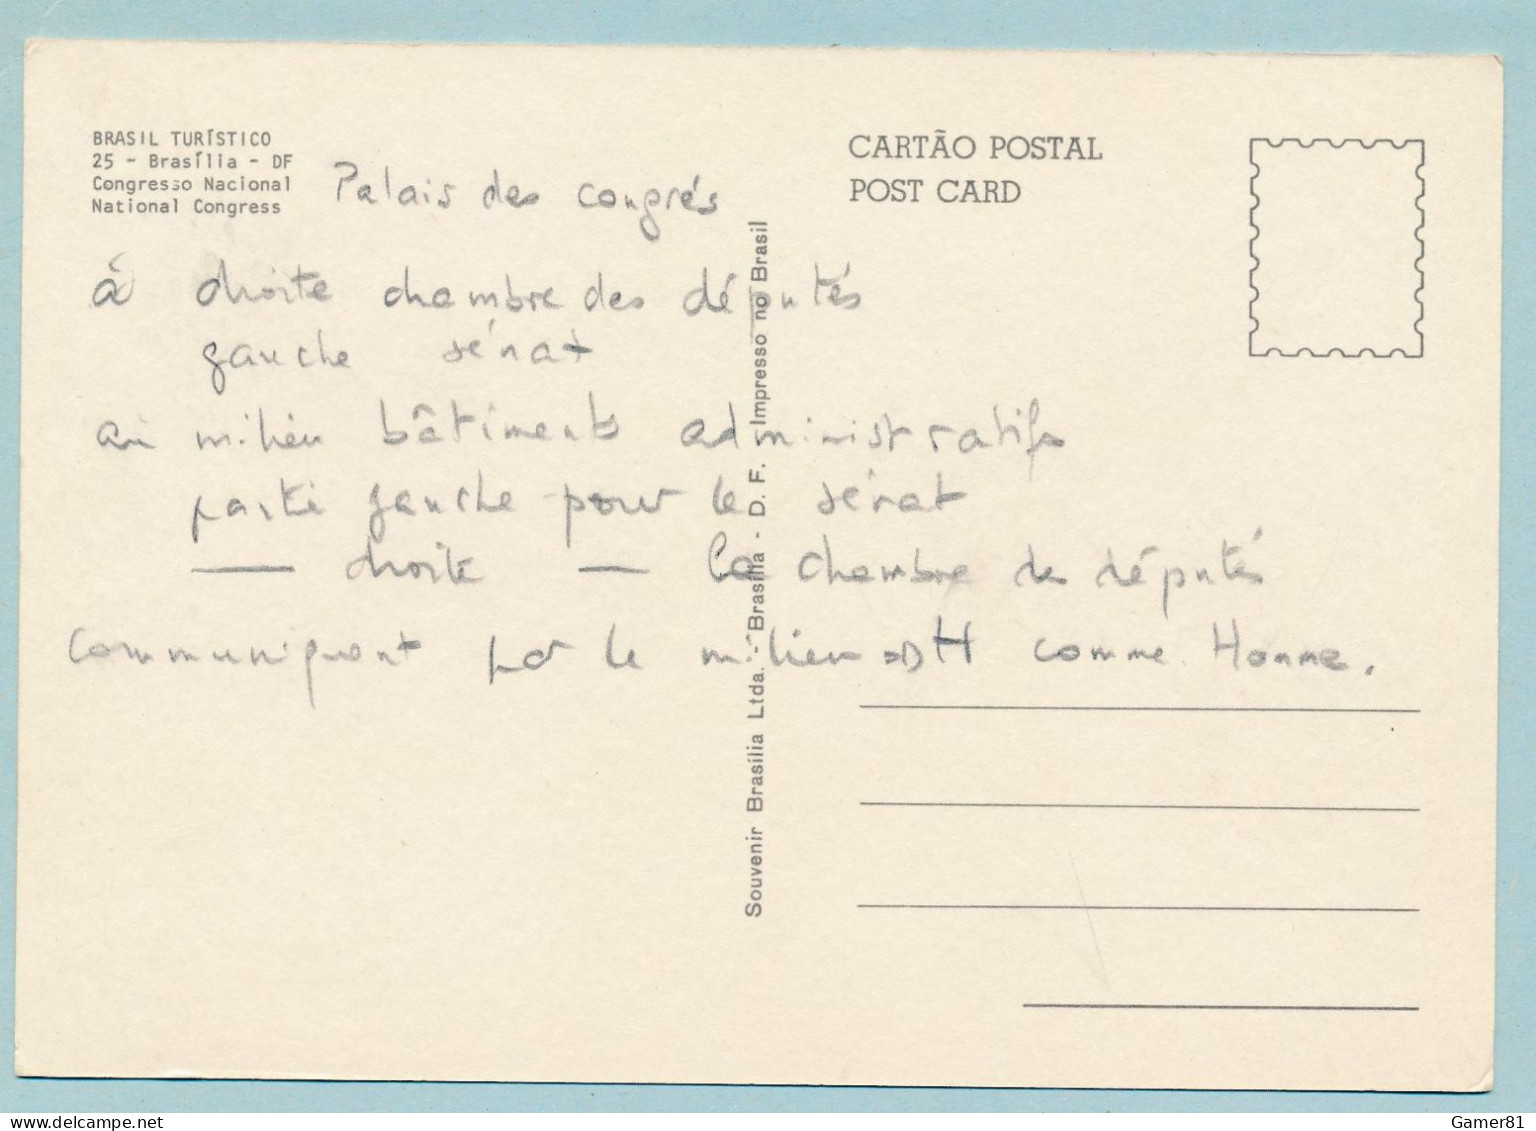 BRASIL TURÍSTICO
25 - Brasília - DF
Congresso Nacional
National Congress
Palais des congrés
CARTÃO POSTAL
POST CARD
à droite chambre des députés
gauche sénat
au milieu bâtiments administratifs
partie gauche pour le sénat
— droite — la chambre des députés
communiquant par le milieu => H comme Homme.
Souvenir Brasília Ltda. - Brasília - D. F. - Impresso no Brasil
Gamer81